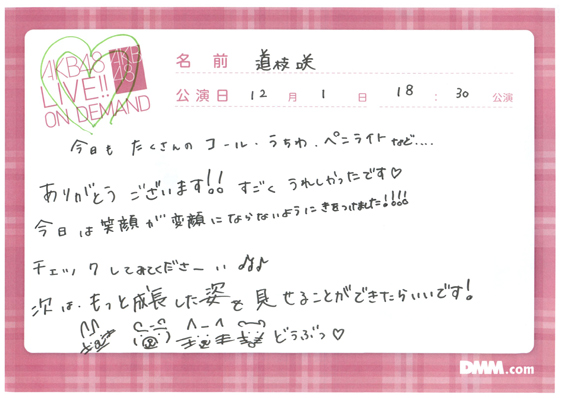 AKB48
LIVE!!
ON DEMAND
AKB
48
名前 道枝咲
公演日 12月1日 18:30公演
今日も たくさんの コール・うちわ・ペンライトなど....
ありがとう ございます!! すごく うれしかったです♡
今日は笑顔が変顔にならないようにきをつけました!!!!
チェック してみてくださーい ♪♪
次は、もっと成長した姿を見せることができたらいいです!
どうぶつ♡
DMM.com